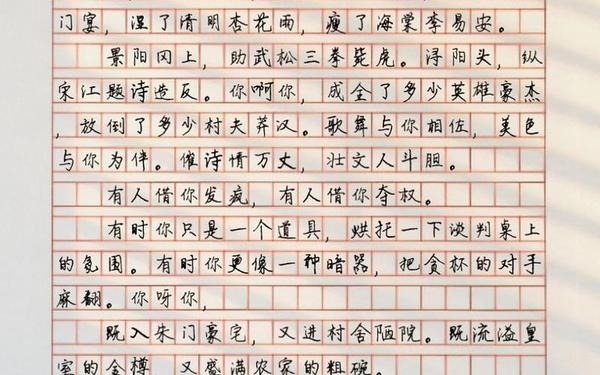 门宴，湿了清明杏花雨，瘦了海棠李易安。
景阳冈上，助武松三拳毙虎。浔阳头，纵
宋江题诗造反。你啊你，成全了多少英雄豪杰
，放倒了多少村夫莽汉。歌舞与你相佐，美色
与你为伴。催诗情万丈，壮文人斗胆。
有人借你发疯，有人借你夺权。
有时你只是一个道具，烘托一下谈判桌上
的氛围。有时你更像一种暗器，把贪杯的对手
麻翻。你呀你，
既入朱门豪宅，又进村舍陋院。既流溢皇
室的金樽，又盛满农家的粗碗。